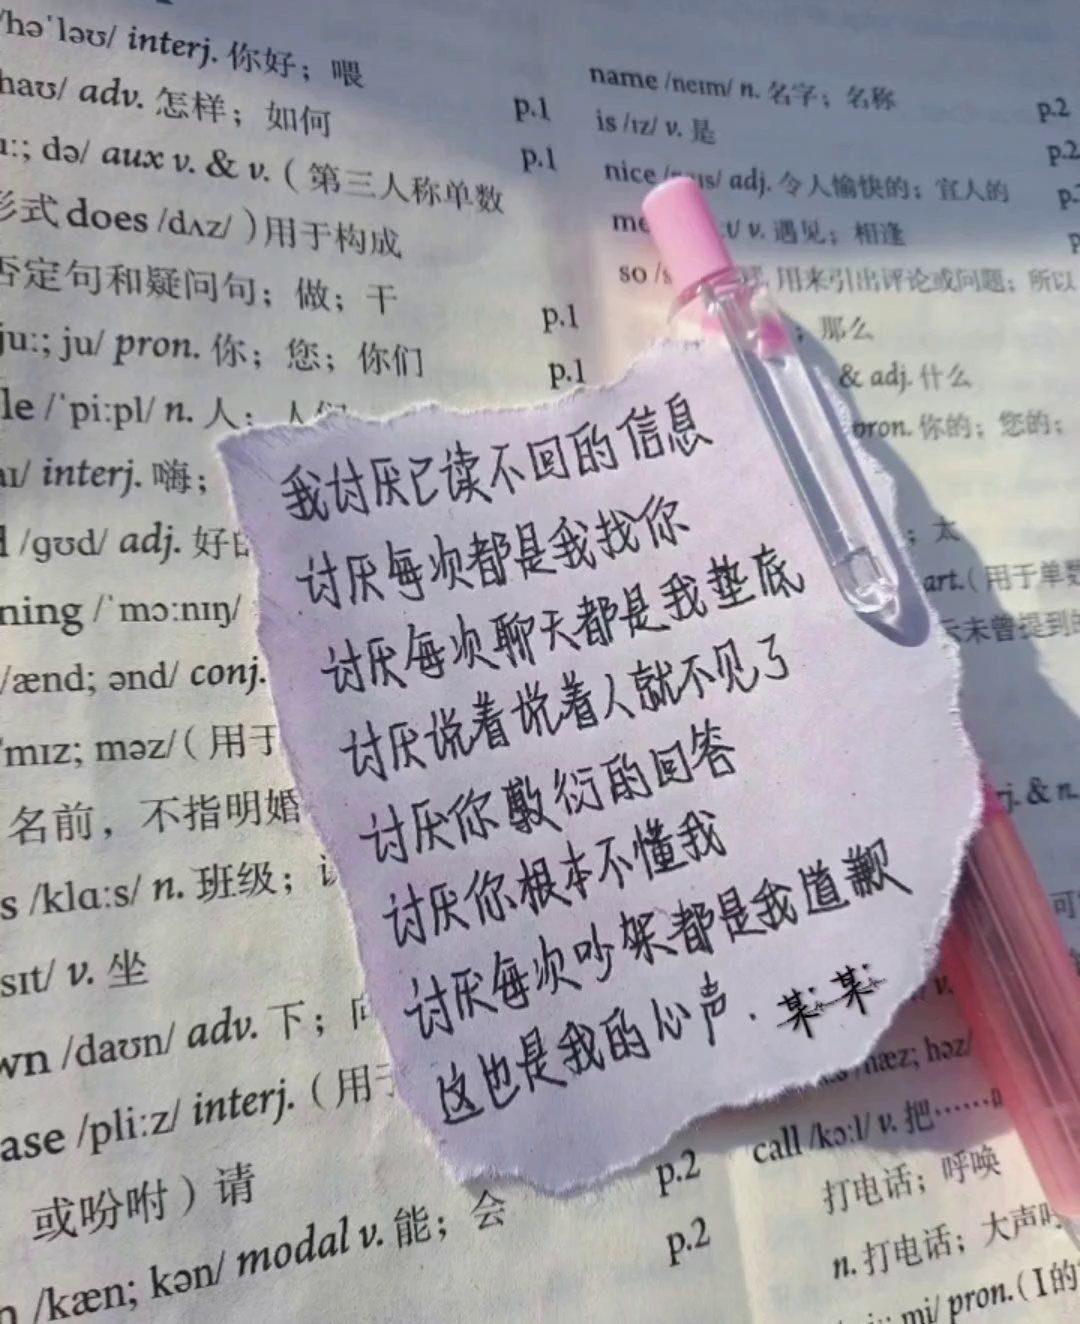 /hə'ləʊ/ interj. 你好；喂
haʊ/ adv. 怎样；如何 p.1
ɑː; də/ aux v. & v.（第三人称单数 p.1
形式 does /dʌz/ ）用于构成
否定句和疑问句；做；干 p.1
juː; ju/ pron. 你；您；你们 p.1
le /'piːpl/ n. 人；人们
aɪ/ interj. 嗨；
/gʊd/ adj. 好
ning /'mɔːnɪŋ/
/ænd; ənd/ conj.
'mɪz; məz/（用于
名前，不指明婚
s /klɑːs/ n. 班级；
sɪt/ v. 坐
wn /daʊn/ adv. 下；向
ase /pliːz/ interj.（用于
或吩咐）请 p.2
n /kæn; kən/ modal v. 能；会 p.2
name /neɪm/ n. 名字；名称 p.2
is /ɪz/ v. 是 p.2
nice /naɪs/ adj. 令人愉快的；宜人的 p.
me t/ v. 遇见；相逢 p
so /s 用来引出评论或问题；所以
；那么
& adj. 什么
pron. 你的；您的；
；太
art.（用于单数
未曾提到的
我讨厌已读不回的信息
讨厌每次都是我找你
讨厌每次聊天都是我垫底
讨厌说着说着人就不见了
讨厌你敷衍的回答
讨厌你根本不懂我
讨厌每次吵架都是我道歉
这也是我的心声. 某某
rj. & n.
可
v.
hæz; həz/
call /kɔːl/ v. 把……
打电话；呼唤
n. 打电话；大声呼
mi/ pron.（I 的